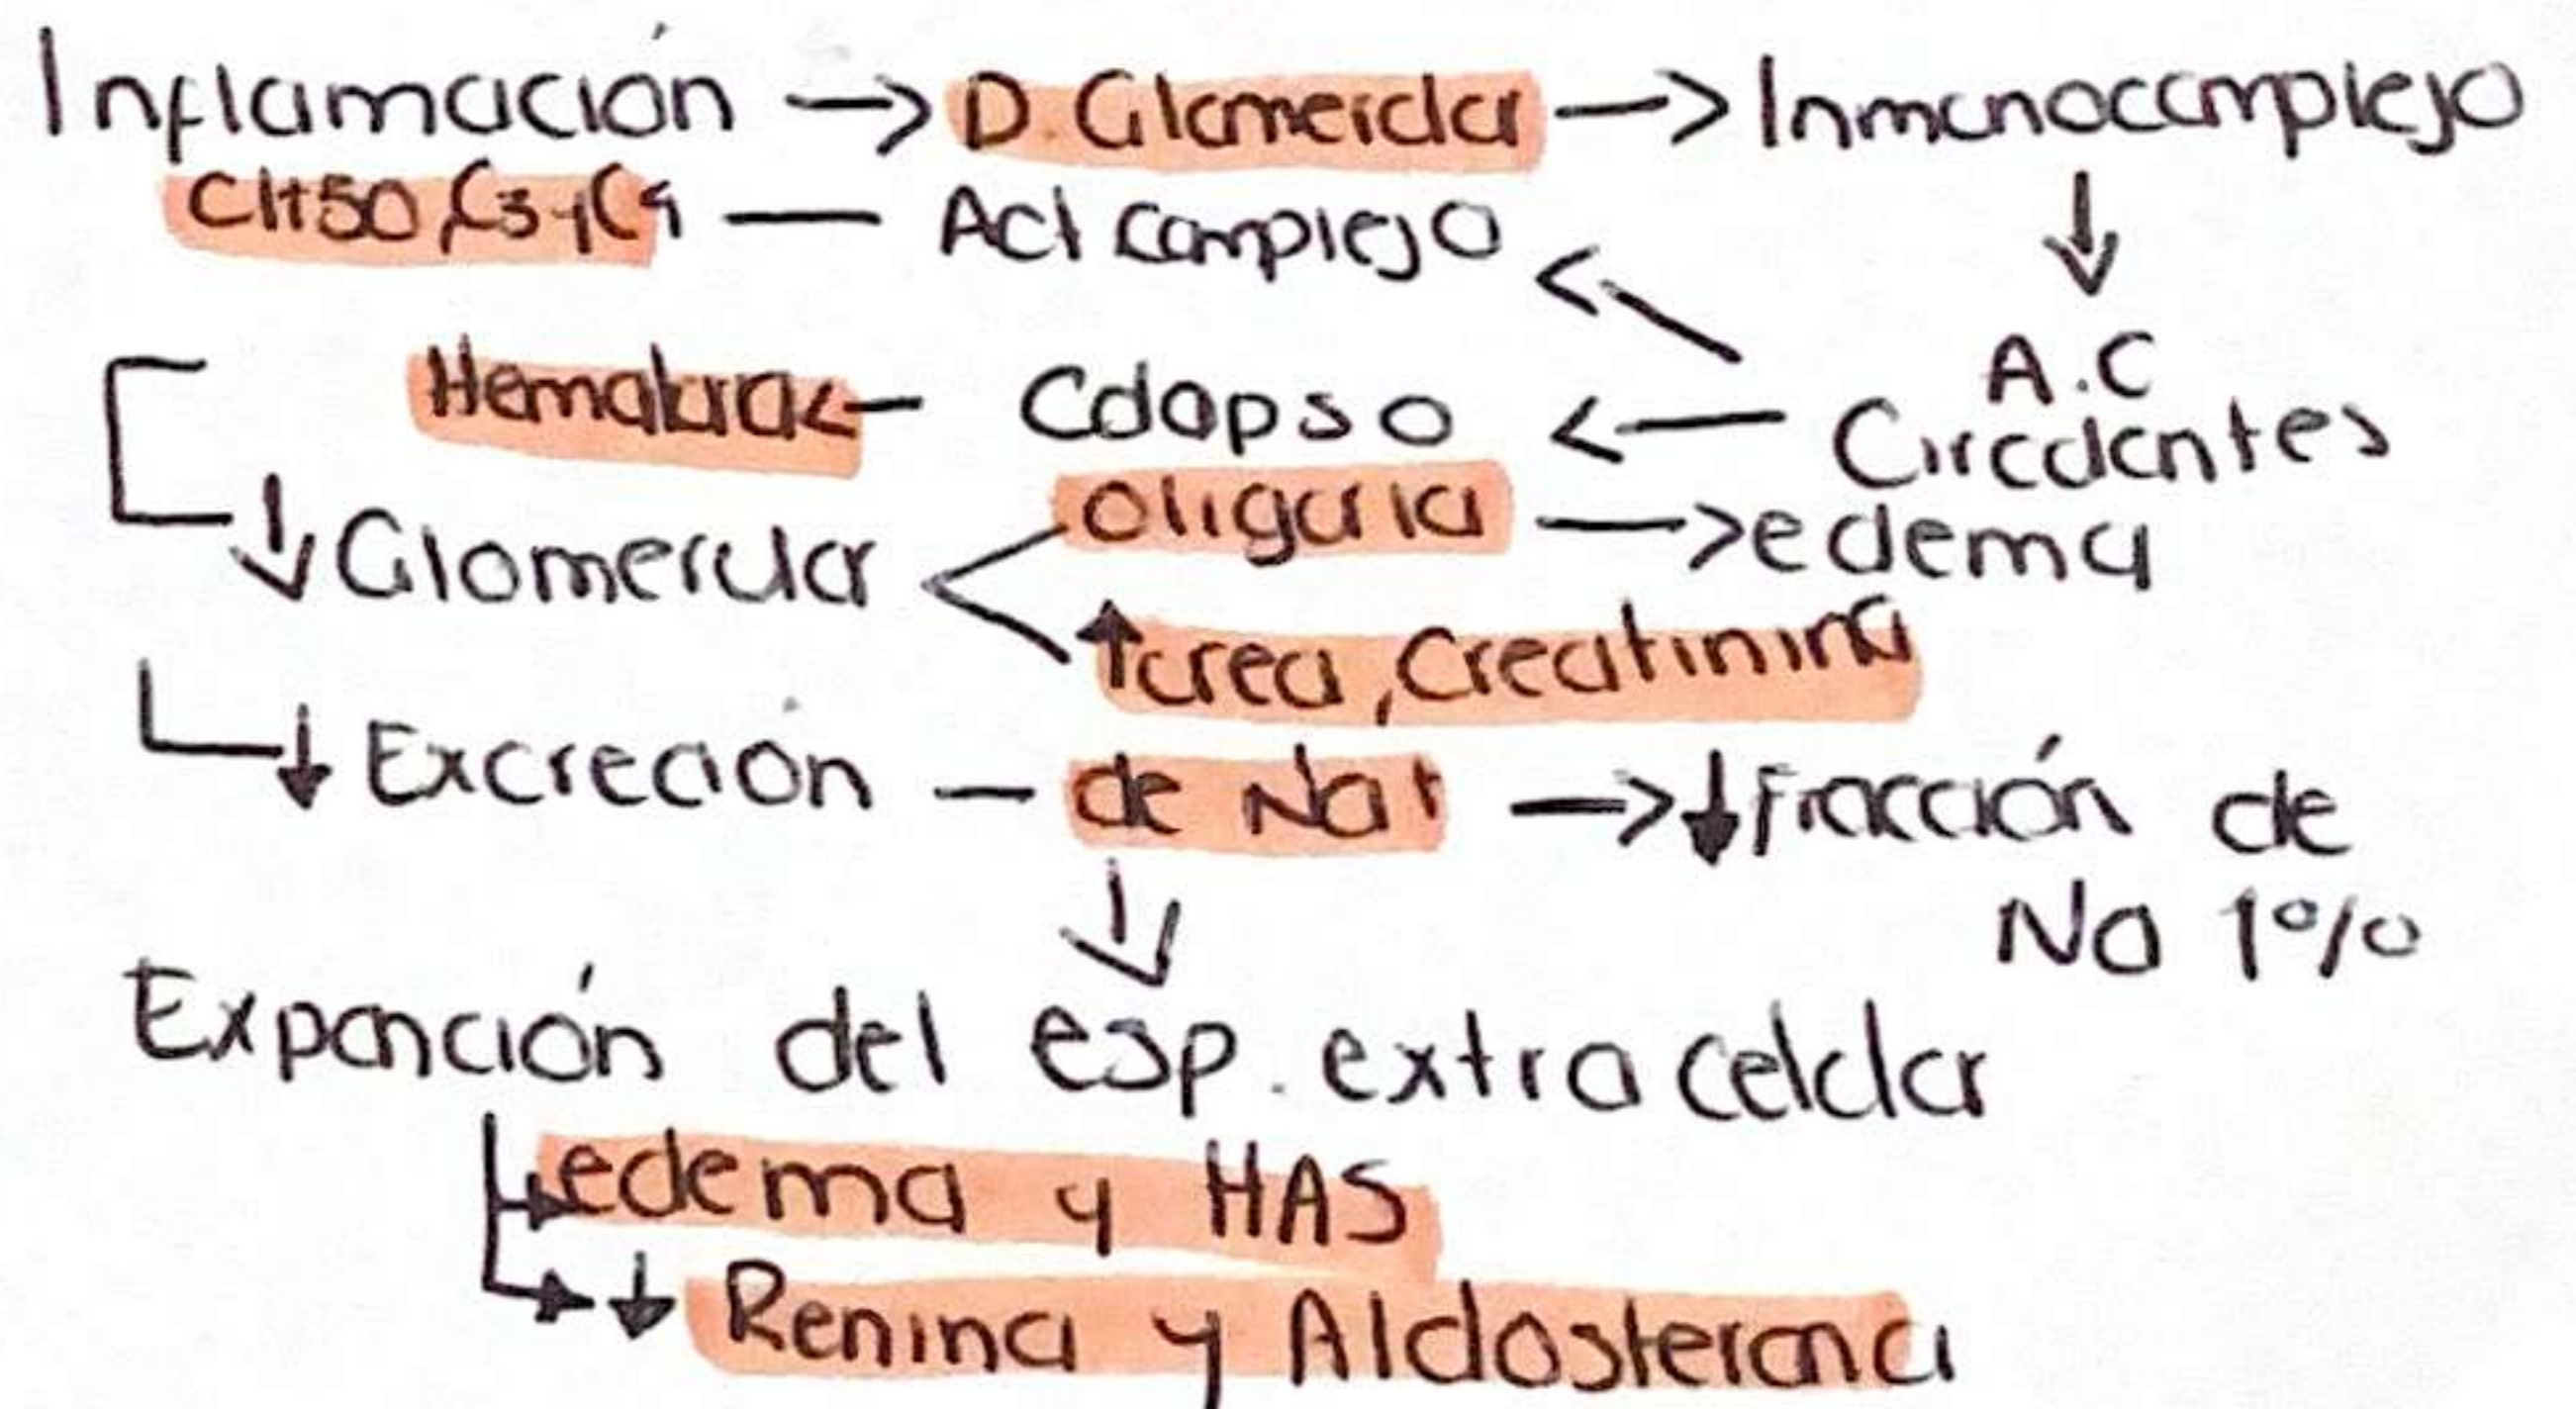 Inflamación -> D. Glomerular -> Inmunocomplejo
CH50, C3 y C4 — Act complejo
A.C
Hematuria <- Colapso <- Circulantes
oliguria -> edema
↓ Glomerular
↑ urea, Creatinina
↓ Excreción — de Na+ -> ↓ Fracción de
Na 1%
Expanción del esp. extracelular
edema y HAS
↓ Renina y Aldosterona